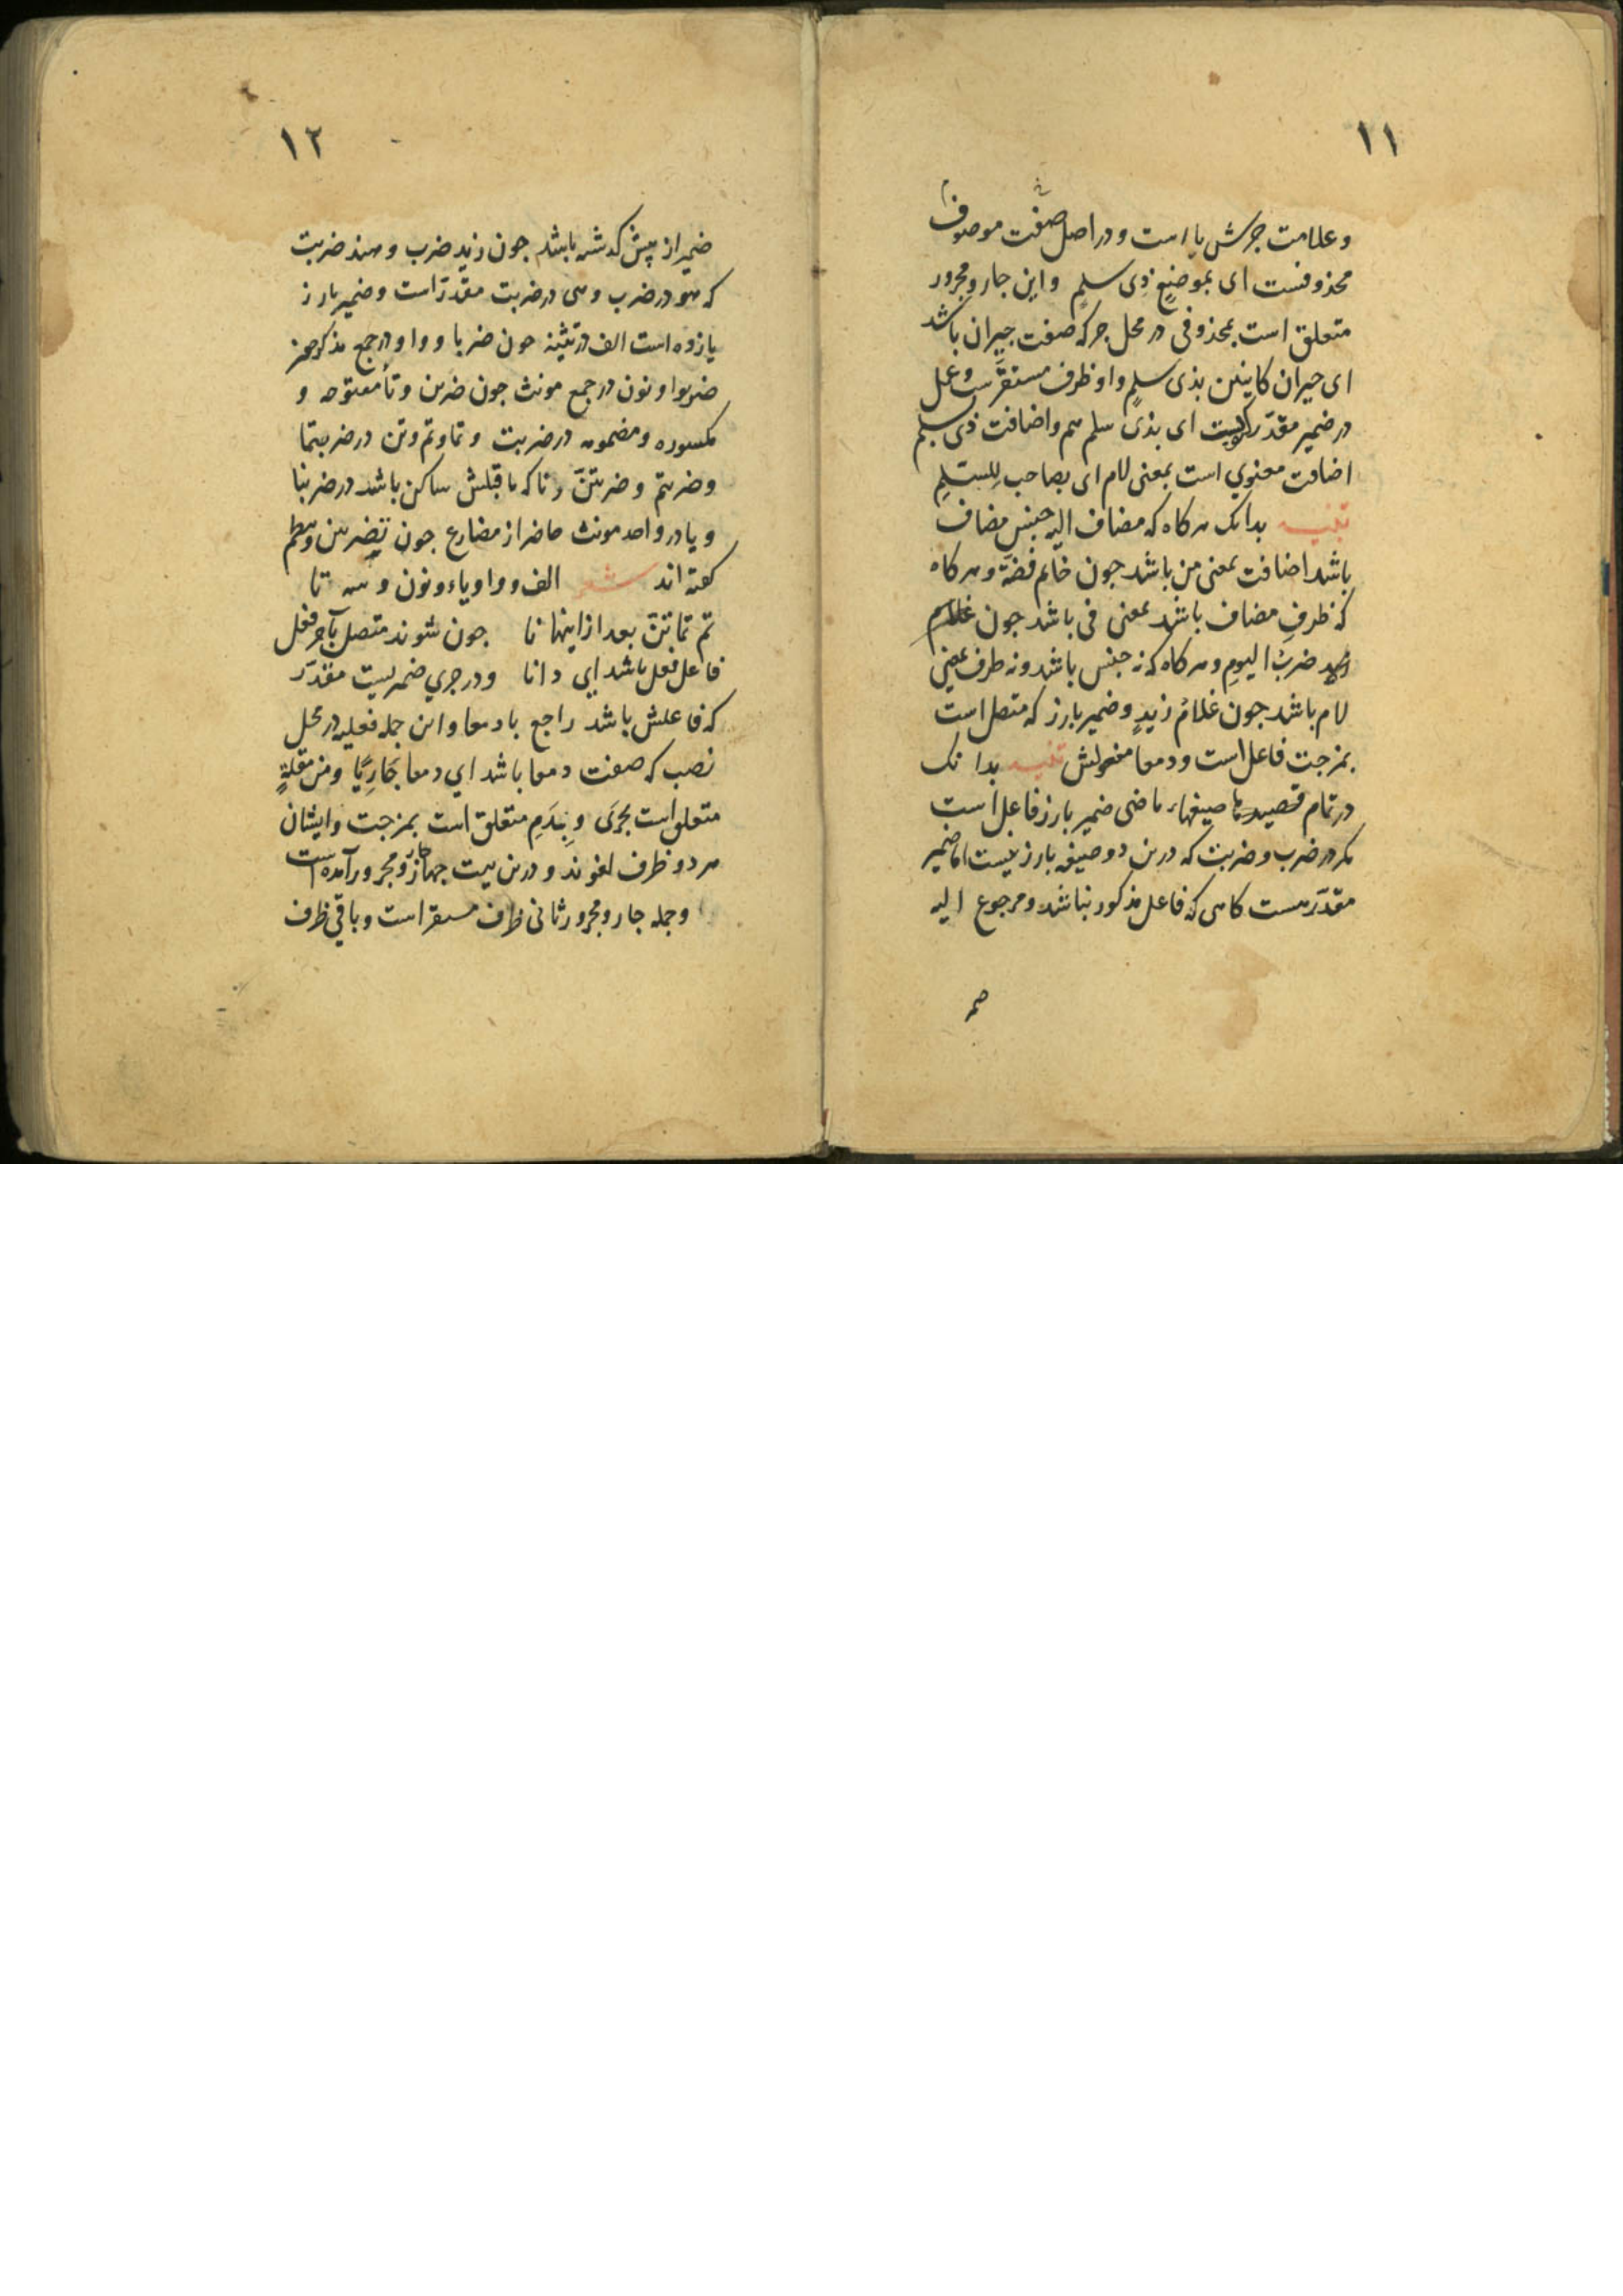 ١١
وعلامت جرش یا است و در اصل صفت موصوف
محذوفست ای بموضعٍ ذِی سلمٍ و این جار و مجرور
متعلق است بمحذوفی در محل جر که صفت جیران باشد
ای جیران کاینین بذی سلمٍ و او ظرف مستقرّست و عمل
در ضمیر مقدّر ای بذی سلم هم و اضافت ذی سلم
اضافت معنوی است بمعنی لام ای بصاحب لِلسّلمِ
تنبیه بدانک هر کاه که مضاف الیه جنس مضاف
باشد اضافت بمعنی من باشد جون خاتم فضّة و هر کاه
که ظرفِ مضاف باشد بمعنی فی باشد جون
ضربُ الیومِ و هر کاه که نه جنس باشد و نه ظرف بمعنی
لام باشد جون غلامُ زیدٍ و ضمیر بارز که متصل است
بمزجت فاعل است و دمعا مفعولش تنبیه بدانک
در تمام صیغهاء ماضی ضمیر بارز فاعل است
مکر در ضرب و ضربت که درین دو صیغه بارز نیست اما ضمیر
مقدّر هست کاهی که فاعل مذکور نباشد و مرجوع الیه
ضمیر
١٢
ضمیر از پیش کدشته باشد جون زید ضرب و هند ضربت
که هو در ضرب و هی در ضربت مقدّر است و ضمیر بارز
یازده است الف در تثنیه جون ضربا و واو در جمع مذکر جون
ضربوا و نون در جمع مونث جون ضربن و تاء مفتوحه و
مکسوره و مضمومه در ضربت و تما و تم و تن در ضربتما
و ضربتم و ضربتنّ و نا که ماقبلش ساکن باشد در ضربنا
و یا در واحد مونث حاضر از مضارع جون تضربین و نظم
کفته اند شعر الف و واو یاء و نون و سه تا
تم تما تنّ بعد ازاینها نا جون شوند متصل بآخر فعل
فاعل فعل باشد ای دانا و در جری ضمیریست مقدّر
که فاعلش باشد راجع بادمعا و این جمله فعلیه در محل
نصب که صفت دمعا باشد ای دمعا جَارِیًا و من مقلةٍ
متعلق است بجری و بِدَمِ متعلق است بمزجت و ایشان
هر دو ظرف لغوند و درین بیت جهار جارّ و مجرور آمده است
و جمله جار و مجرور ثانی ظرف مستقر است و باقی ظرف